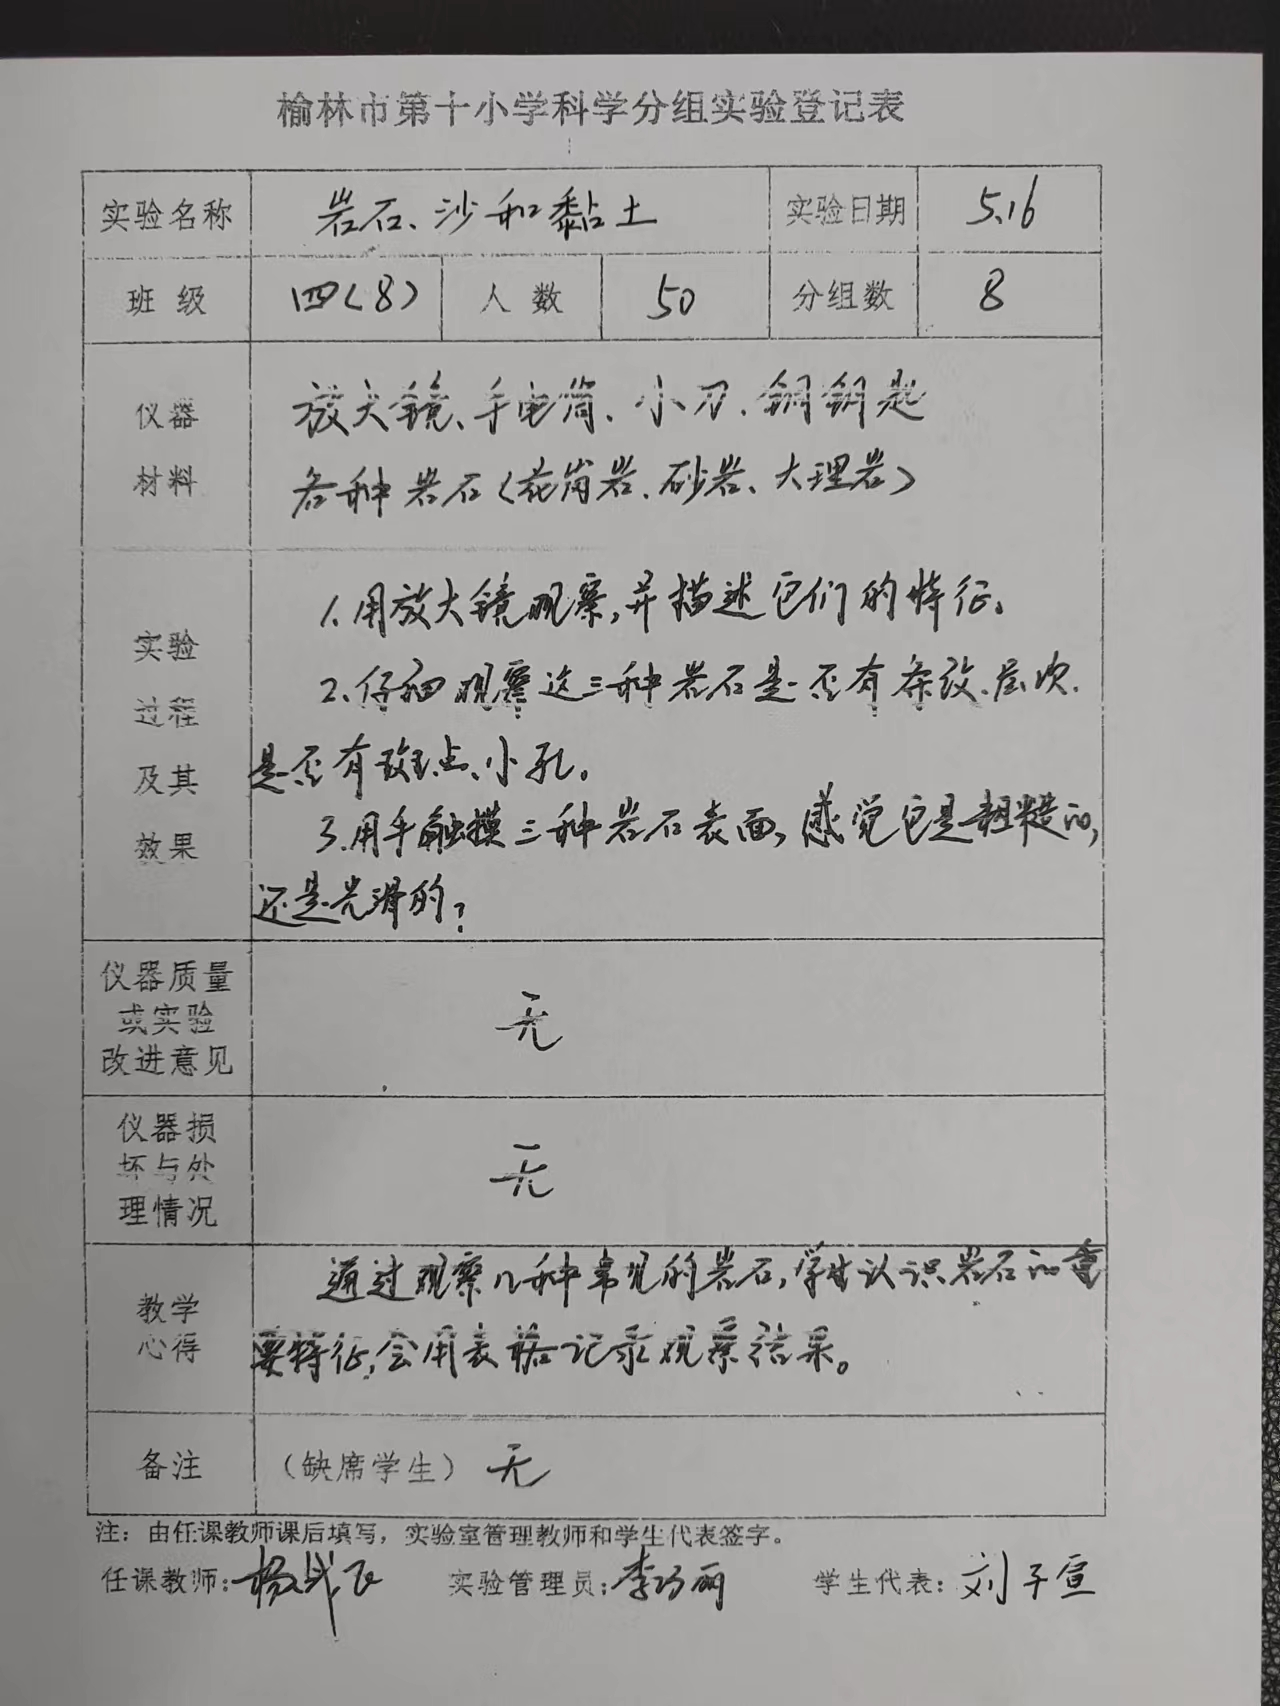 榆林市第十小学科学分组实验登记表
实验名称 岩石、沙和黏土 实验日期 5.16
班级 四(8) 人数 50 分组数 8
仪器材料
放大镜、手电筒、小刀、铜钥匙
各种岩石(花岗岩、砂岩、大理岩)
实验过程及其效果
1.用放大镜观察,并描述它们的特征。
2.仔细观察这三种岩石是否有条纹、层次.
是否有斑点、小孔。
3.用手触摸三种岩石表面,感觉它是粗糙的,
还是光滑的?
仪器质量
或实验
改进意见
无
仪器损
坏与处
理情况
无
教学
心得
通过观察几种常见的岩石,学生认识岩石的重
要特征,会用表格记录观察结果。
备注 (缺席学生) 无
注:由任课教师课后填写,实验室管理教师和学生代表签字。
任课教师: 实验管理员:李巧丽 学生代表:刘子宣